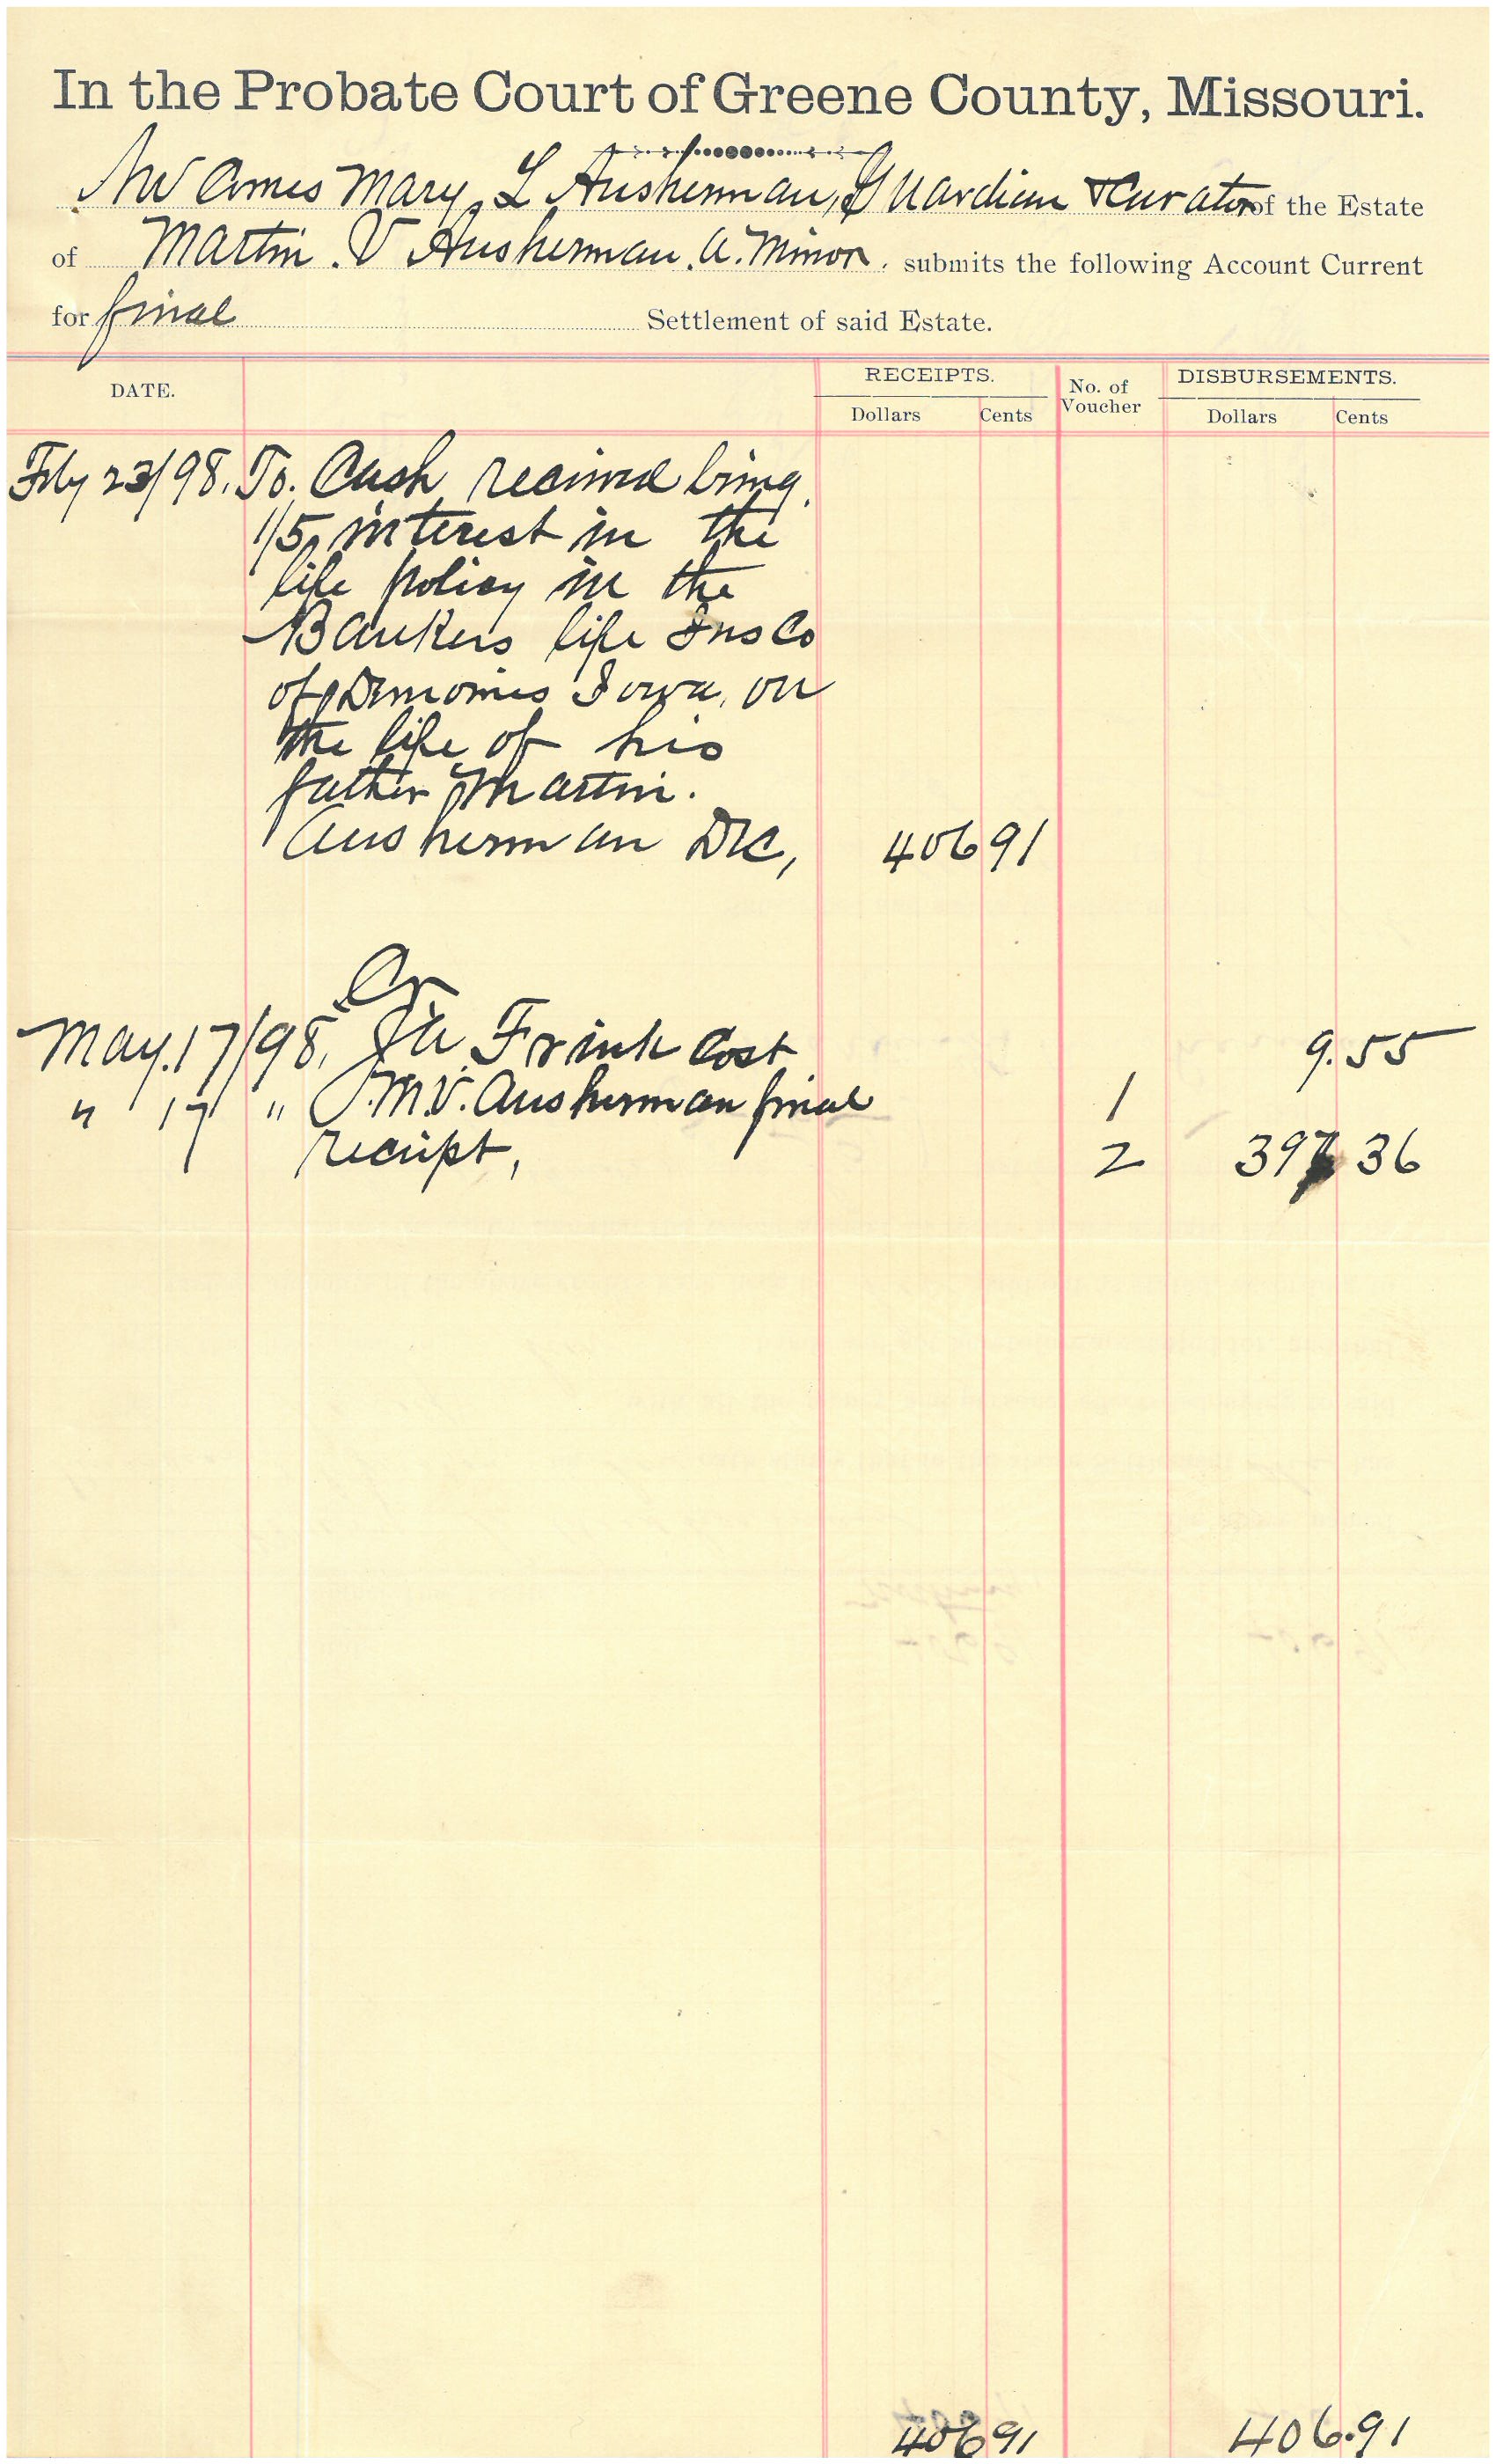 In the Probate Court of Greene County, Missouri.
Now Comes Mary L Ausherman, Guardian & Curator of the Estate
of Martin V Ausherman. a. Minor, submits the following Account Current
for final Settlement of said Estate.
DATE. RECEIPTS. No. of Voucher DISBURSEMENTS.
Dollars Cents Dollars Cents
Feby 23/98. To. Cash received being
1/5 interest in the
life policy in the
Bankers life Ins Co
of Desmoines Iowa, on
the life of his
father Martin.
Ausherman Dec, 406 91
Cr
May. 17/98. Frink Cost 1 9.55
" 17 " M.V. Ausherman final
receipt, 2 397 36
406 91 406.91